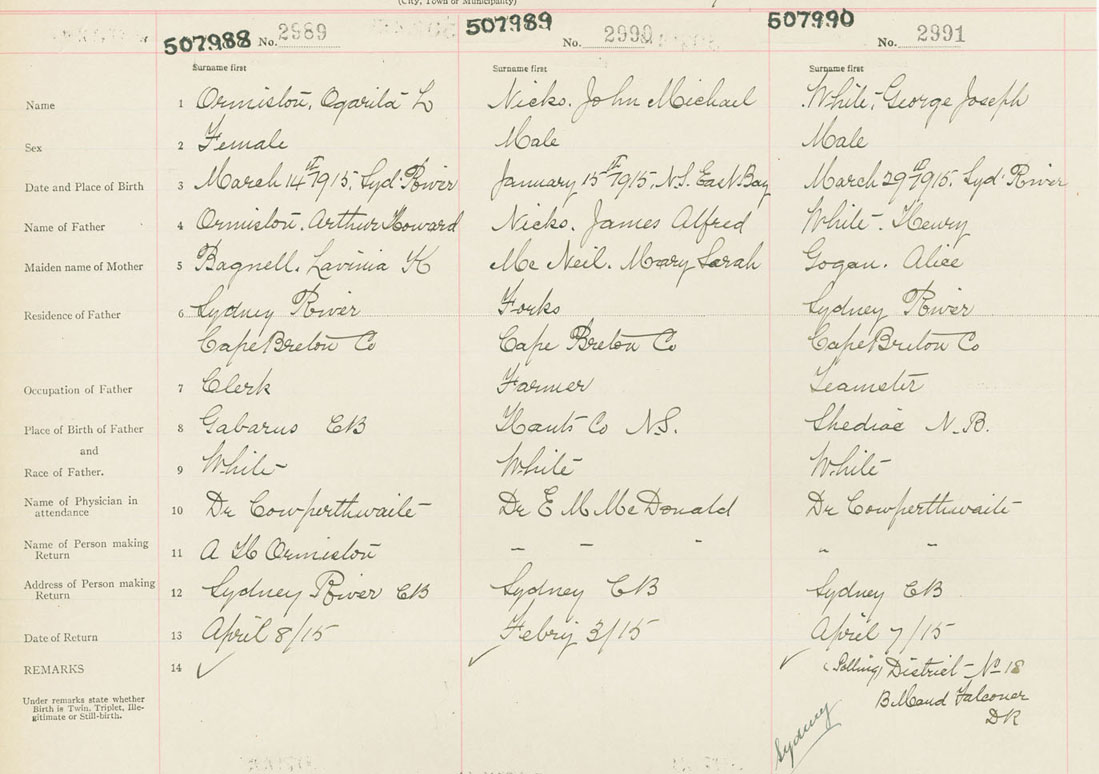 (City, Town or Municipality)
507988 No. 2989 507989 No. 2990 507990 No. 2991
Surname first Surname first Surname first
Name 1 Ormiston, Ogarita L Nicks. John Michael White, George Joseph
Sex 2 Female Male Male
Date and Place of Birth 3 March 14th 1915, Syd. River January 15th 1915, N.S. East Bay March 29th 1915, Syd. River
Name of Father 4 Ormiston. Arthur Howard Nicks. James Alfred White. Henry
Maiden name of Mother 5 Bagnell. Lavinia K Mc Neil. Mary Sarah Gogan. Alice
Residence of Father 6 Sydney River Forks Sydney River
Cape Breton Co Cape Breton Co Cape Breton Co
Occupation of Father 7 Clerk Farmer Teamster
Place of Birth of Father 8 Gabarus CB Hants Co N.S. Shediac N.B.
and
Race of Father. 9 White White White
Name of Physician in attendance 10 Dr Cowperthwaite Dr E M McDonald Dr Cowperthwaite
Name of Person making Return 11 A H Ormiston - - - - -
Address of Person making Return 12 Sydney River CB Sydney CB Sydney CB
Date of Return 13 April 8/15 Febry 3/15 April 7/15
REMARKS 14 ✓ ✓ ✓ (Polling) District No 18
Under remarks state whether
Birth is Twin, Triplet, Ille-
gitimate or Still-birth.
B Maud Falconer
DR
Sydney